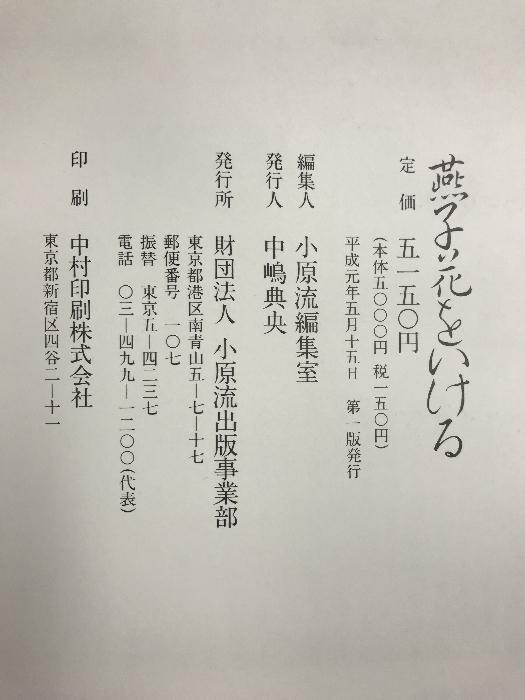 燕子花をいける
定価 五一五〇円
(本体五〇〇〇円 税一五〇円)
平成元年五月十五日 第一版発行
編集人 小原流編集室
発行人 中嶋典央
発行所 財団法人 小原流出版事業部
東京都港区南青山五―七―十七
郵便番号 一〇七
振替 東京五―四二三七
電話 〇三―四九九―一二〇〇(代表)
印刷 中村印刷株式会社
東京都新宿区四谷二―十一